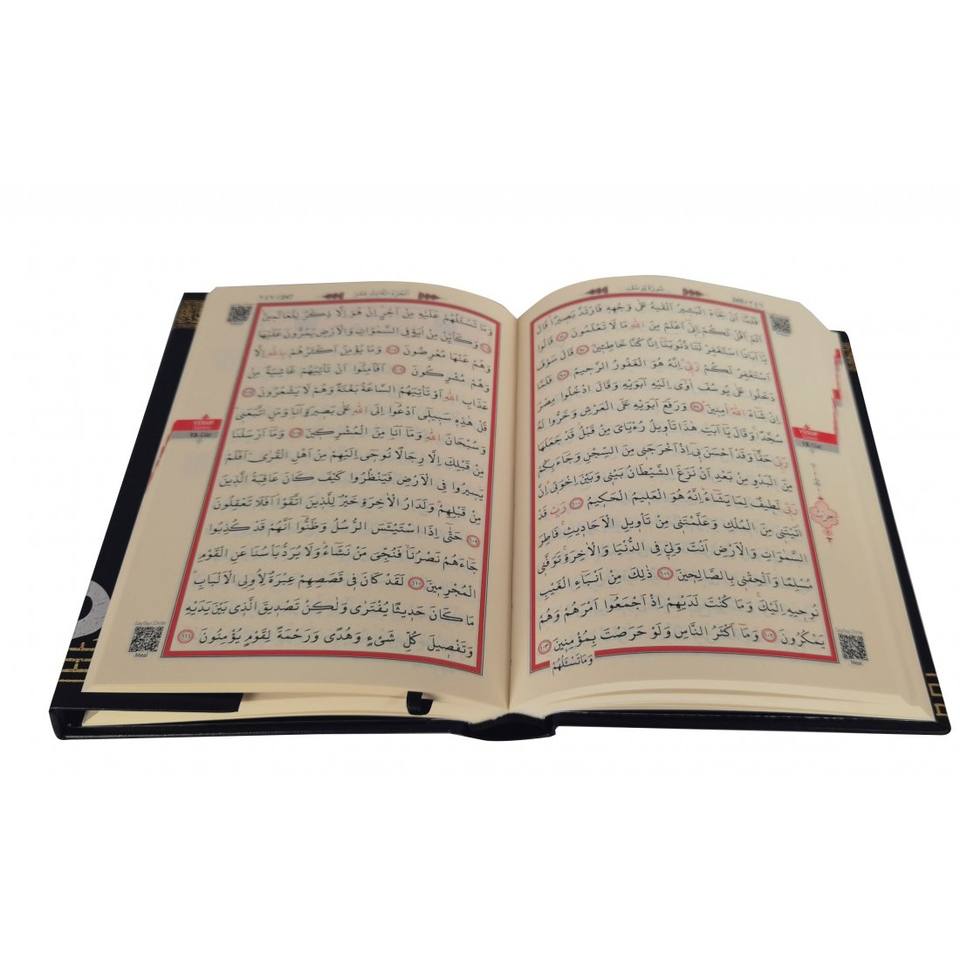 سُورَةُ يُوسُفَ
٢٤٦
فَلَمَّٓا اَنْ جَٓاءَ الْبَشٖيرُ اَلْقٰيهُ عَلٰى وَجْهِهٖ فَارْتَدَّ بَصٖيرًا قَالَ
اَلَمْ اَقُلْ لَكُمْ اِنّٖٓى اَعْلَمُ مِنَ اللّٰهِ مَا لَا تَعْلَمُونَ ﴿٩٦﴾ قَالُوا
يَٓا اَبَانَا اسْتَغْفِرْ لَنَا ذُنُوبَنَٓا اِنَّا كُنَّا خَاطِـٖٔينَ ﴿٩٧﴾ قَالَ سَوْفَ
اَسْتَغْفِرُ لَكُمْ رَبّٖى اِنَّهُ هُوَ الْغَفُورُ الرَّحٖيمُ ﴿٩٨﴾ فَلَمَّا
دَخَلُوا عَلٰى يُوسُفَ اٰوٰٓى اِلَيْهِ اَبَوَيْهِ وَقَالَ ادْخُلُوا مِصْرَ
اِنْ شَٓاءَ اللّٰهُ اٰمِنٖينَ ﴿٩٩﴾ وَرَفَعَ اَبَوَيْهِ عَلَى الْعَرْشِ وَخَرُّوا لَهُ
سُجَّدًا وَقَالَ يَٓا اَبَتِ هٰذَا تَأْوٖيلُ رُءْيَايَ مِنْ قَبْلُ قَدْ جَعَلَهَا
رَبّٖى حَقًّا وَقَدْ اَحْسَنَ بٖٓى اِذْ اَخْرَجَنٖى مِنَ السِّجْنِ وَجَٓاءَ بِكُمْ
مِنَ الْبَدْوِ مِنْ بَعْدِ اَنْ نَزَغَ الشَّيْطَانُ بَيْنٖى وَبَيْنَ اِخْوَتٖى اِنَّ
رَبّٖى لَطٖيفٌ لِمَا يَشَٓاءُ اِنَّهُ هُوَ الْعَلٖيمُ الْحَكٖيمُ ﴿١٠٠﴾ رَبِّ قَدْ
اٰتَيْتَنٖى مِنَ الْمُلْكِ وَعَلَّمْتَنٖى مِنْ تَأْوٖيلِ الْاَحَادٖيثِ فَاطِرَ
السَّمٰوَاتِ وَالْاَرْضِ اَنْتَ وَلِيّٖ فِى الدُّنْيَا وَالْاٰخِرَةِ تَوَفَّنٖى
مُسْلِمًا وَاَلْحِقْنٖى بِالصَّالِحٖينَ ﴿١٠١﴾ ذٰلِكَ مِنْ اَنْبَٓاءِ الْغَيْبِ
نُوحٖيهِ اِلَيْكَ وَمَا كُنْتَ لَدَيْهِمْ اِذْ اَجْمَعُٓوا اَمْرَهُمْ وَهُمْ
يَمْكُرُونَ ﴿١٠٢﴾ وَمَٓا اَكْثَرُ النَّاسِ وَلَوْ حَرَصْتَ بِمُؤْمِنٖينَ ﴿١٠٣﴾
وَمَا تَسْـَٔلُهُمْ
YÛSUF
13.Cüz
Meal
اَلْجُزْءُ الثَّالِثَ عَشَرَ
٢٤٧/247
وَمَا تَسْـَٔلُهُمْ عَلَيْهِ مِنْ اَجْرٍ اِنْ هُوَ اِلَّا ذِكْرٌ لِلْعَالَمٖينَ
﴿١٠٤﴾ وَكَاَيِّنْ مِنْ اٰيَةٍ فِى السَّمٰوَاتِ وَالْاَرْضِ يَمُرُّونَ عَلَيْهَا
وَهُمْ عَنْهَا مُعْرِضُونَ ﴿١٠٥﴾ وَمَا يُؤْمِنُ اَكْثَرُهُمْ بِاللّٰهِ اِلَّا
وَهُمْ مُشْرِكُونَ ﴿١٠٦﴾ اَفَاَمِنُٓوا اَنْ تَأْتِيَهُمْ غَاشِيَةٌ مِنْ
عَذَابِ اللّٰهِ اَوْ تَأْتِيَهُمُ السَّاعَةُ بَغْتَةً وَهُمْ لَا يَشْعُرُونَ ﴿١٠٧﴾
قُلْ هٰذِهٖ سَبٖيلٖٓى اَدْعُٓوا اِلَى اللّٰهِ عَلٰى بَصٖيرَةٍ اَنَا۬ وَمَنِ اتَّبَعَنٖى
وَسُبْحَانَ اللّٰهِ وَمَٓا اَنَا۬ مِنَ الْمُشْرِكٖينَ ﴿١٠٨﴾ وَمَٓا اَرْسَلْنَا
مِنْ قَبْلِكَ اِلَّا رِجَالًا نُوحٖٓى اِلَيْهِمْ مِنْ اَهْلِ الْقُرٰى اَفَلَمْ
يَسٖيرُوا فِى الْاَرْضِ فَيَنْظُرُوا كَيْفَ كَانَ عَاقِبَةُ الَّذٖينَ
مِنْ قَبْلِهِمْ وَلَدَارُ الْاٰخِرَةِ خَيْرٌ لِلَّذٖينَ اتَّقَوْا اَفَلَا تَعْقِلُونَ
﴿١٠٩﴾ حَتّٰٓى اِذَا اسْتَيْـَٔسَ الرُّسُلُ وَظَنُّٓوا اَنَّهُمْ قَدْ كُذِبُوا
جَٓاءَهُمْ نَصْرُنَا فَنُجِّىَ مَنْ نَشَٓاءُ وَلَا يُرَدُّ بَأْسُنَا عَنِ الْقَوْمِ
الْمُجْرِمٖينَ ﴿١١٠﴾ لَقَدْ كَانَ فٖى قَصَصِهِمْ عِبْرَةٌ لِاُو۬لِى الْاَلْبَابِ
مَا كَانَ حَدٖيثًا يُفْتَرٰى وَلٰكِنْ تَصْدٖيقَ الَّذٖى بَيْنَ يَدَيْهِ
وَتَفْصٖيلَ كُلِّ شَىْءٍ وَهُدًى وَرَحْمَةً لِقَوْمٍ يُؤْمِنُونَ ﴿١١١﴾
YÛSUF
13.Cüz
Meal